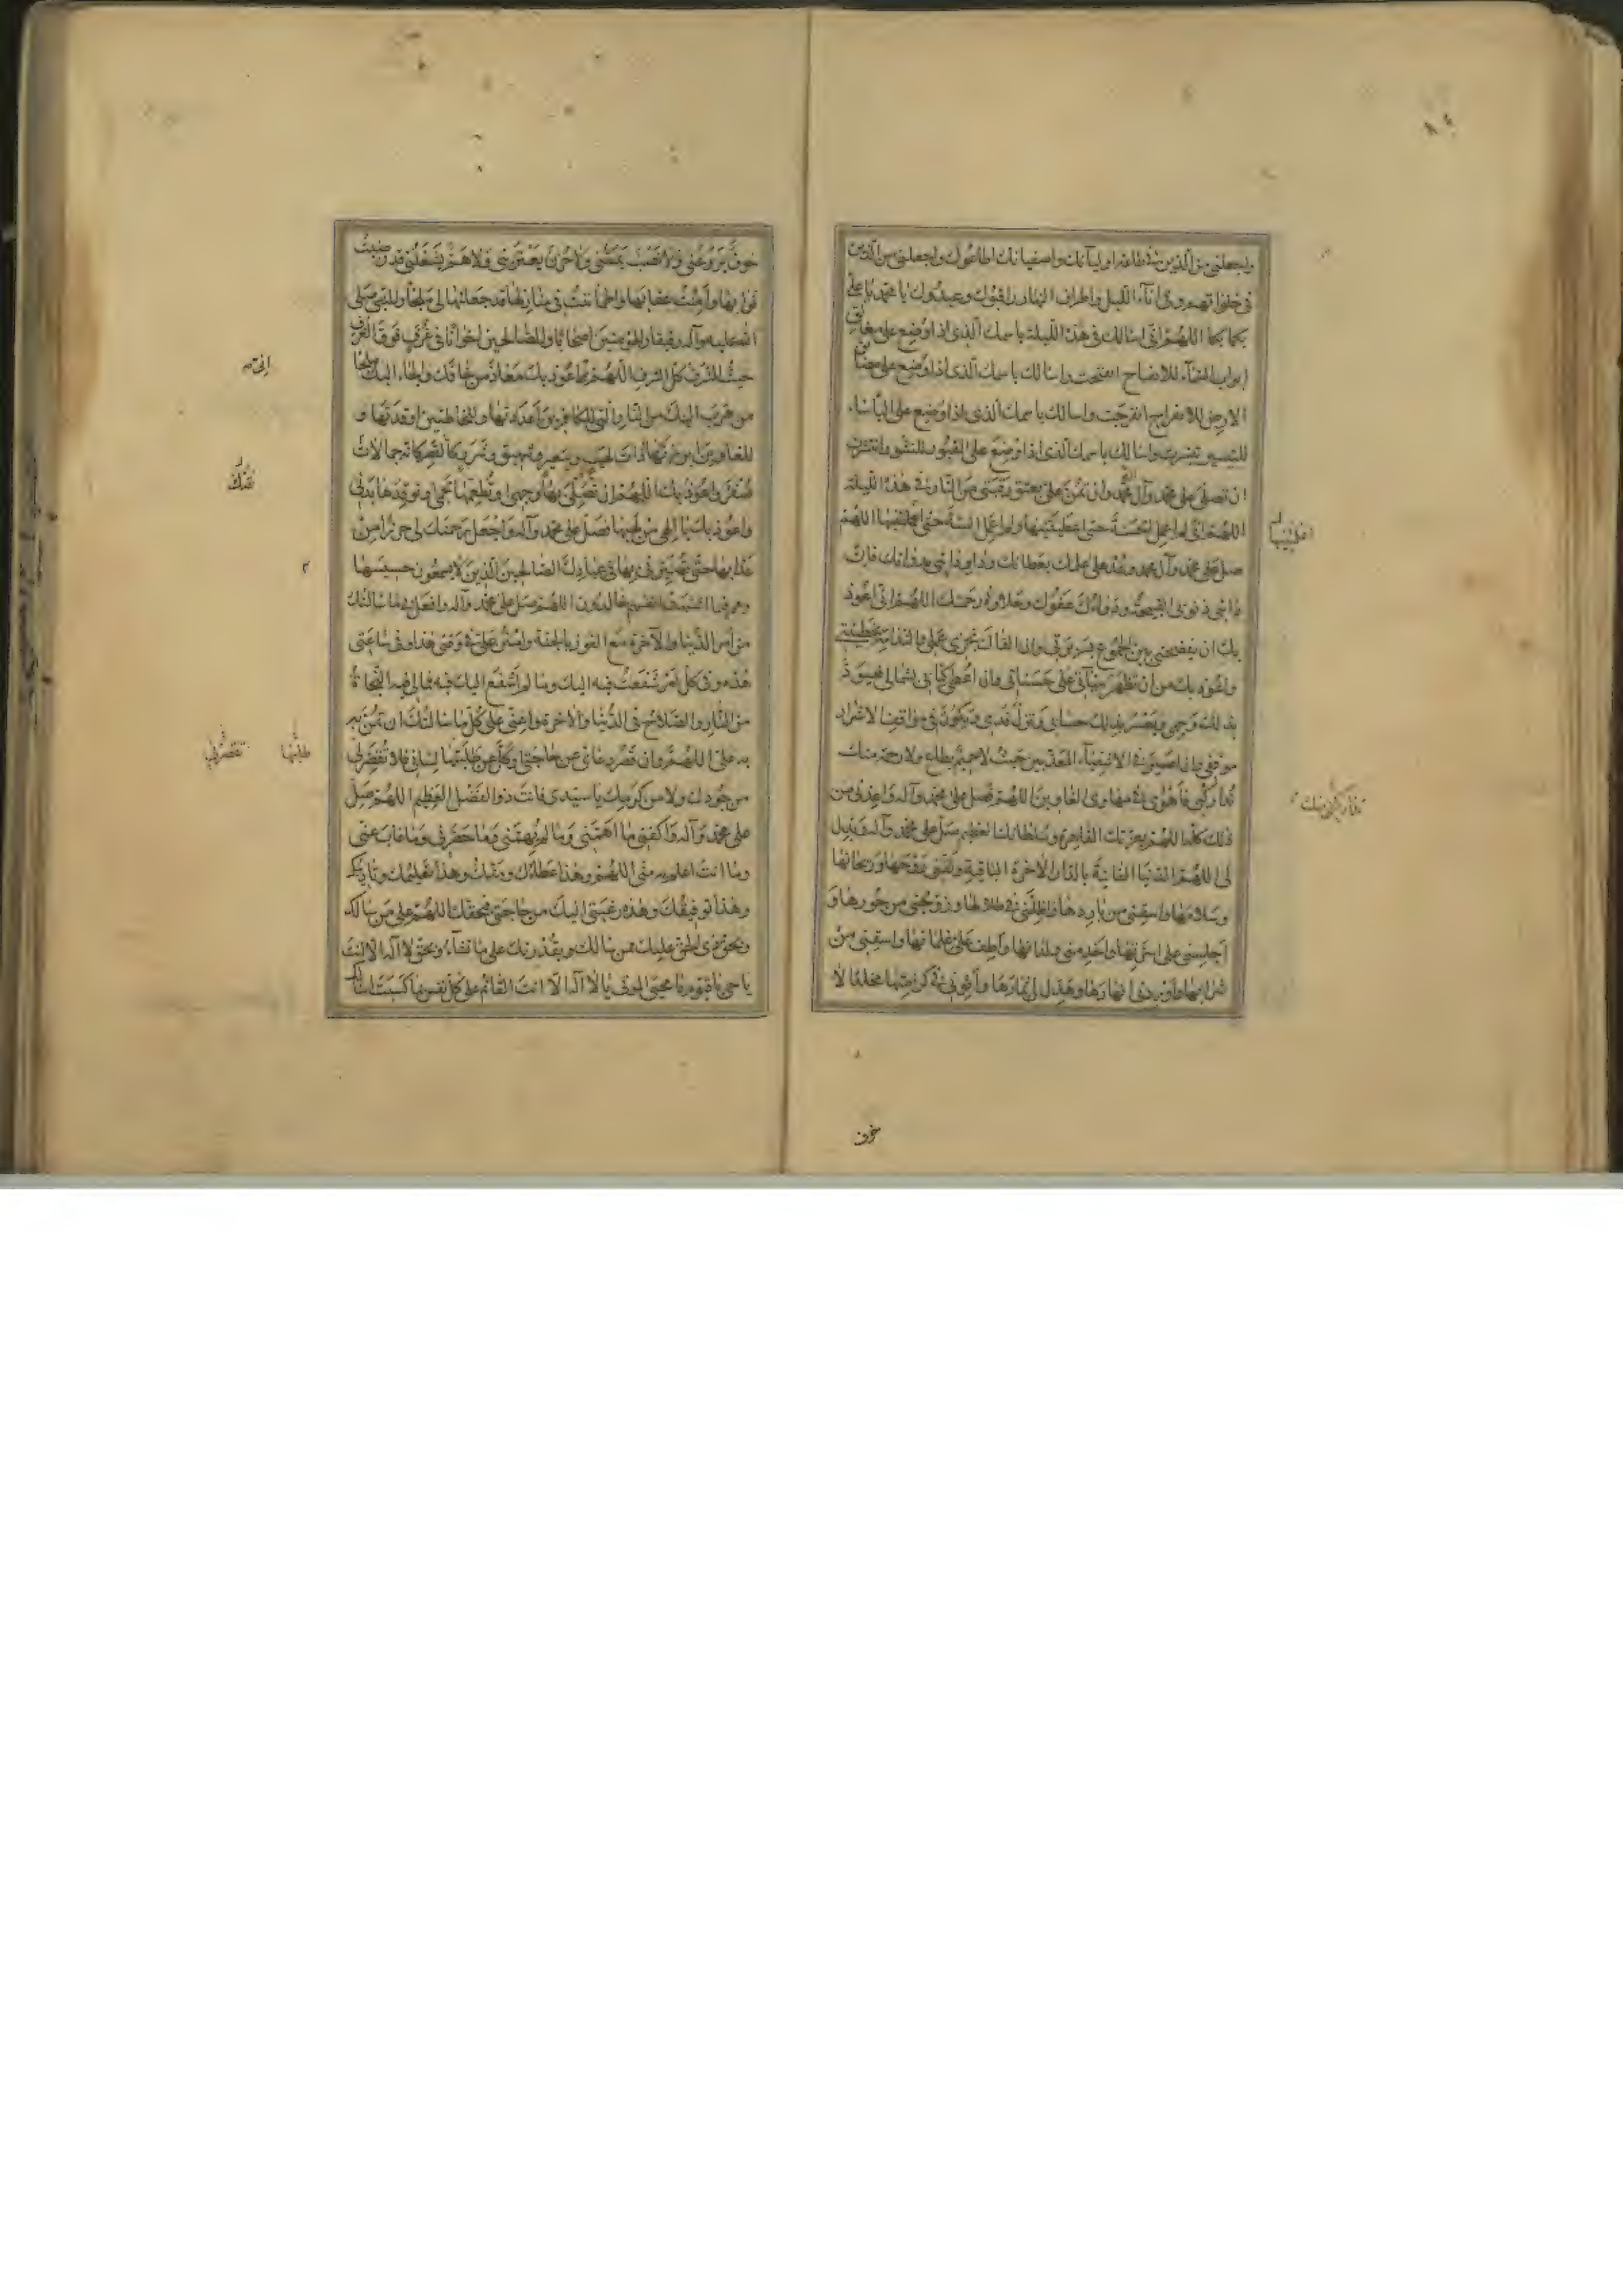 واجعلني من الذين في طاعة اوليائك واصفيائك اطاعوك واجعلني من الذين
في خلواتهم وفي آناء الليل واطراف النهار راقبوك وعبدوك يا محمد يا علي
بكما بكما اللهم اني اسالك في هذه الليلة باسمك الذي اذا وضع على مغالق
ابواب السماء للانفتاح انفتحت واسالك باسمك الذي اذا وضع على مضائق
الارض للانفراج انفرجت واسالك باسمك الذي اذا وضع على البأساء
للتيسير تيسرت واسالك باسمك الذي اذا وضع على القبور للنشور انتشرت
ان تصلي على محمد وآل محمد وان تمن علي بعتق رقبتي من النار في هذه الليلة
اللهم اني لم اعمل الحسنة حتى اعطيتنيها ولم اعمل السيئة حتى اللهم
صل على محمد وآل محمد وعد على علمك بعطائك وداو دائي بدوائك فان
دائي ذنوبي القبيحة ودواءك عفوك وحلاوة رحمتك اللهم اني اعوذ
بك ان تفضحني بين الجموع وان القاك بخزي عملي والندامة بخطيئتي
واعوذ بك من ان تظهر سيئاتي على حسناتي وان اعطى كتابي بشمالي فيسود
بذلك وجهي ويعسر بذلك حسابي وتزل قدمي ويكون في مواقف الاشرار
موقفي وان اصير في الاشقياء المعذبين حيث لا حميم يطاع ولا رحمة منك
تداركني فاهوي في مهاوي الغاوين اللهم فصل على محمد وآله واعذني من
ذلك كله اللهم بعزتك القاهرة وسلطانك العظيم صل على محمد وآله وبدل
لي اللهم الدنيا الفانية بالدار الآخرة الباقية ولقني روحها وريحانها
وسلامها واسقني من باردها واظلني في ظلالها وزوجني من حورها و
اجلسني على اسرتها واخدمني ولدانها واطف علي غلمانها واسقني من
شرابها واوردني انهارها وهدل لي ثمارها واثوني في كرامتها مخلدا لا
خوف
خوف يروعني ولا نصب يمسني ولا حزن يعتريني ولا هم يشغلني قد رضيت
ثوابها وامنت عقابها واطمأننت في منازلها قد جعلتها لي ملجأ وللنبي صلى
الله عليه وآله رفيقا وللمؤمنين اصحابا وللصالحين اخوانا في غرف فوق الغرف
حيث الشرف كل الشرف اللهم واعوذ بك معاذة من خافك والجأ اليك ملجأ
من هرب اليك من النار التي للكافرين اعددتها وللخاطئين اوقدتها و
للغاوين ابرزتها ذات لهب وسعير وشهيق وشرر كالقصر كانه جمالات
صفر واعوذ بك اللهم ان تصلي بها وجهي وتطعمها لحمي وتوقدها بدني
واعوذ بك يا الهي من لهبها فصل على محمد وآله واجعل رحمتك لي حرزا من
عذابها حتى تصيرني بها في عبادك الصالحين الذين لا يسمعون حسيسها
وهم فيما اشتهت انفسهم خالدون اللهم صل على محمد وآله وافعل بي ما سالتك
من امر الدنيا والآخرة مع الفوز بالجنة وامنن علي في وقتي هذا وفي ساعتي
هذه وفي كل امر شفعت فيه اليك وما لم اشفع اليك فيه مما لي فيه النجاة
من النار والصلاح في الدنيا والآخرة واعني على كل ما سالتك ان تمن به
علي اللهم وان قصر دعائي عن حاجتي وكل عن طلبتها لساني فلا تقصر بي
من جودك ولا من كرمك يا سيدي فانت ذو الفضل العظيم اللهم صل
على محمد وآله واكفني ما اهمني وما لم يهمني وما حضرني وما غاب عني
وما انت اعلم به مني اللهم وهذا عطاؤك ومنك وهذا تعليمك وتاديبك
وهذا توفيقك وهذه رغبتي اليك من حاجتي فبحقك اللهم على من سالك
وبحق ذي الحق عليك ممن سالك وبقدرتك على ما تشاء وبحق لا اله الا انت
يا حي يا قيوم يا محيي الموتى يا لا اله الا انت القائم على كل نفس بما كسبت اسالك